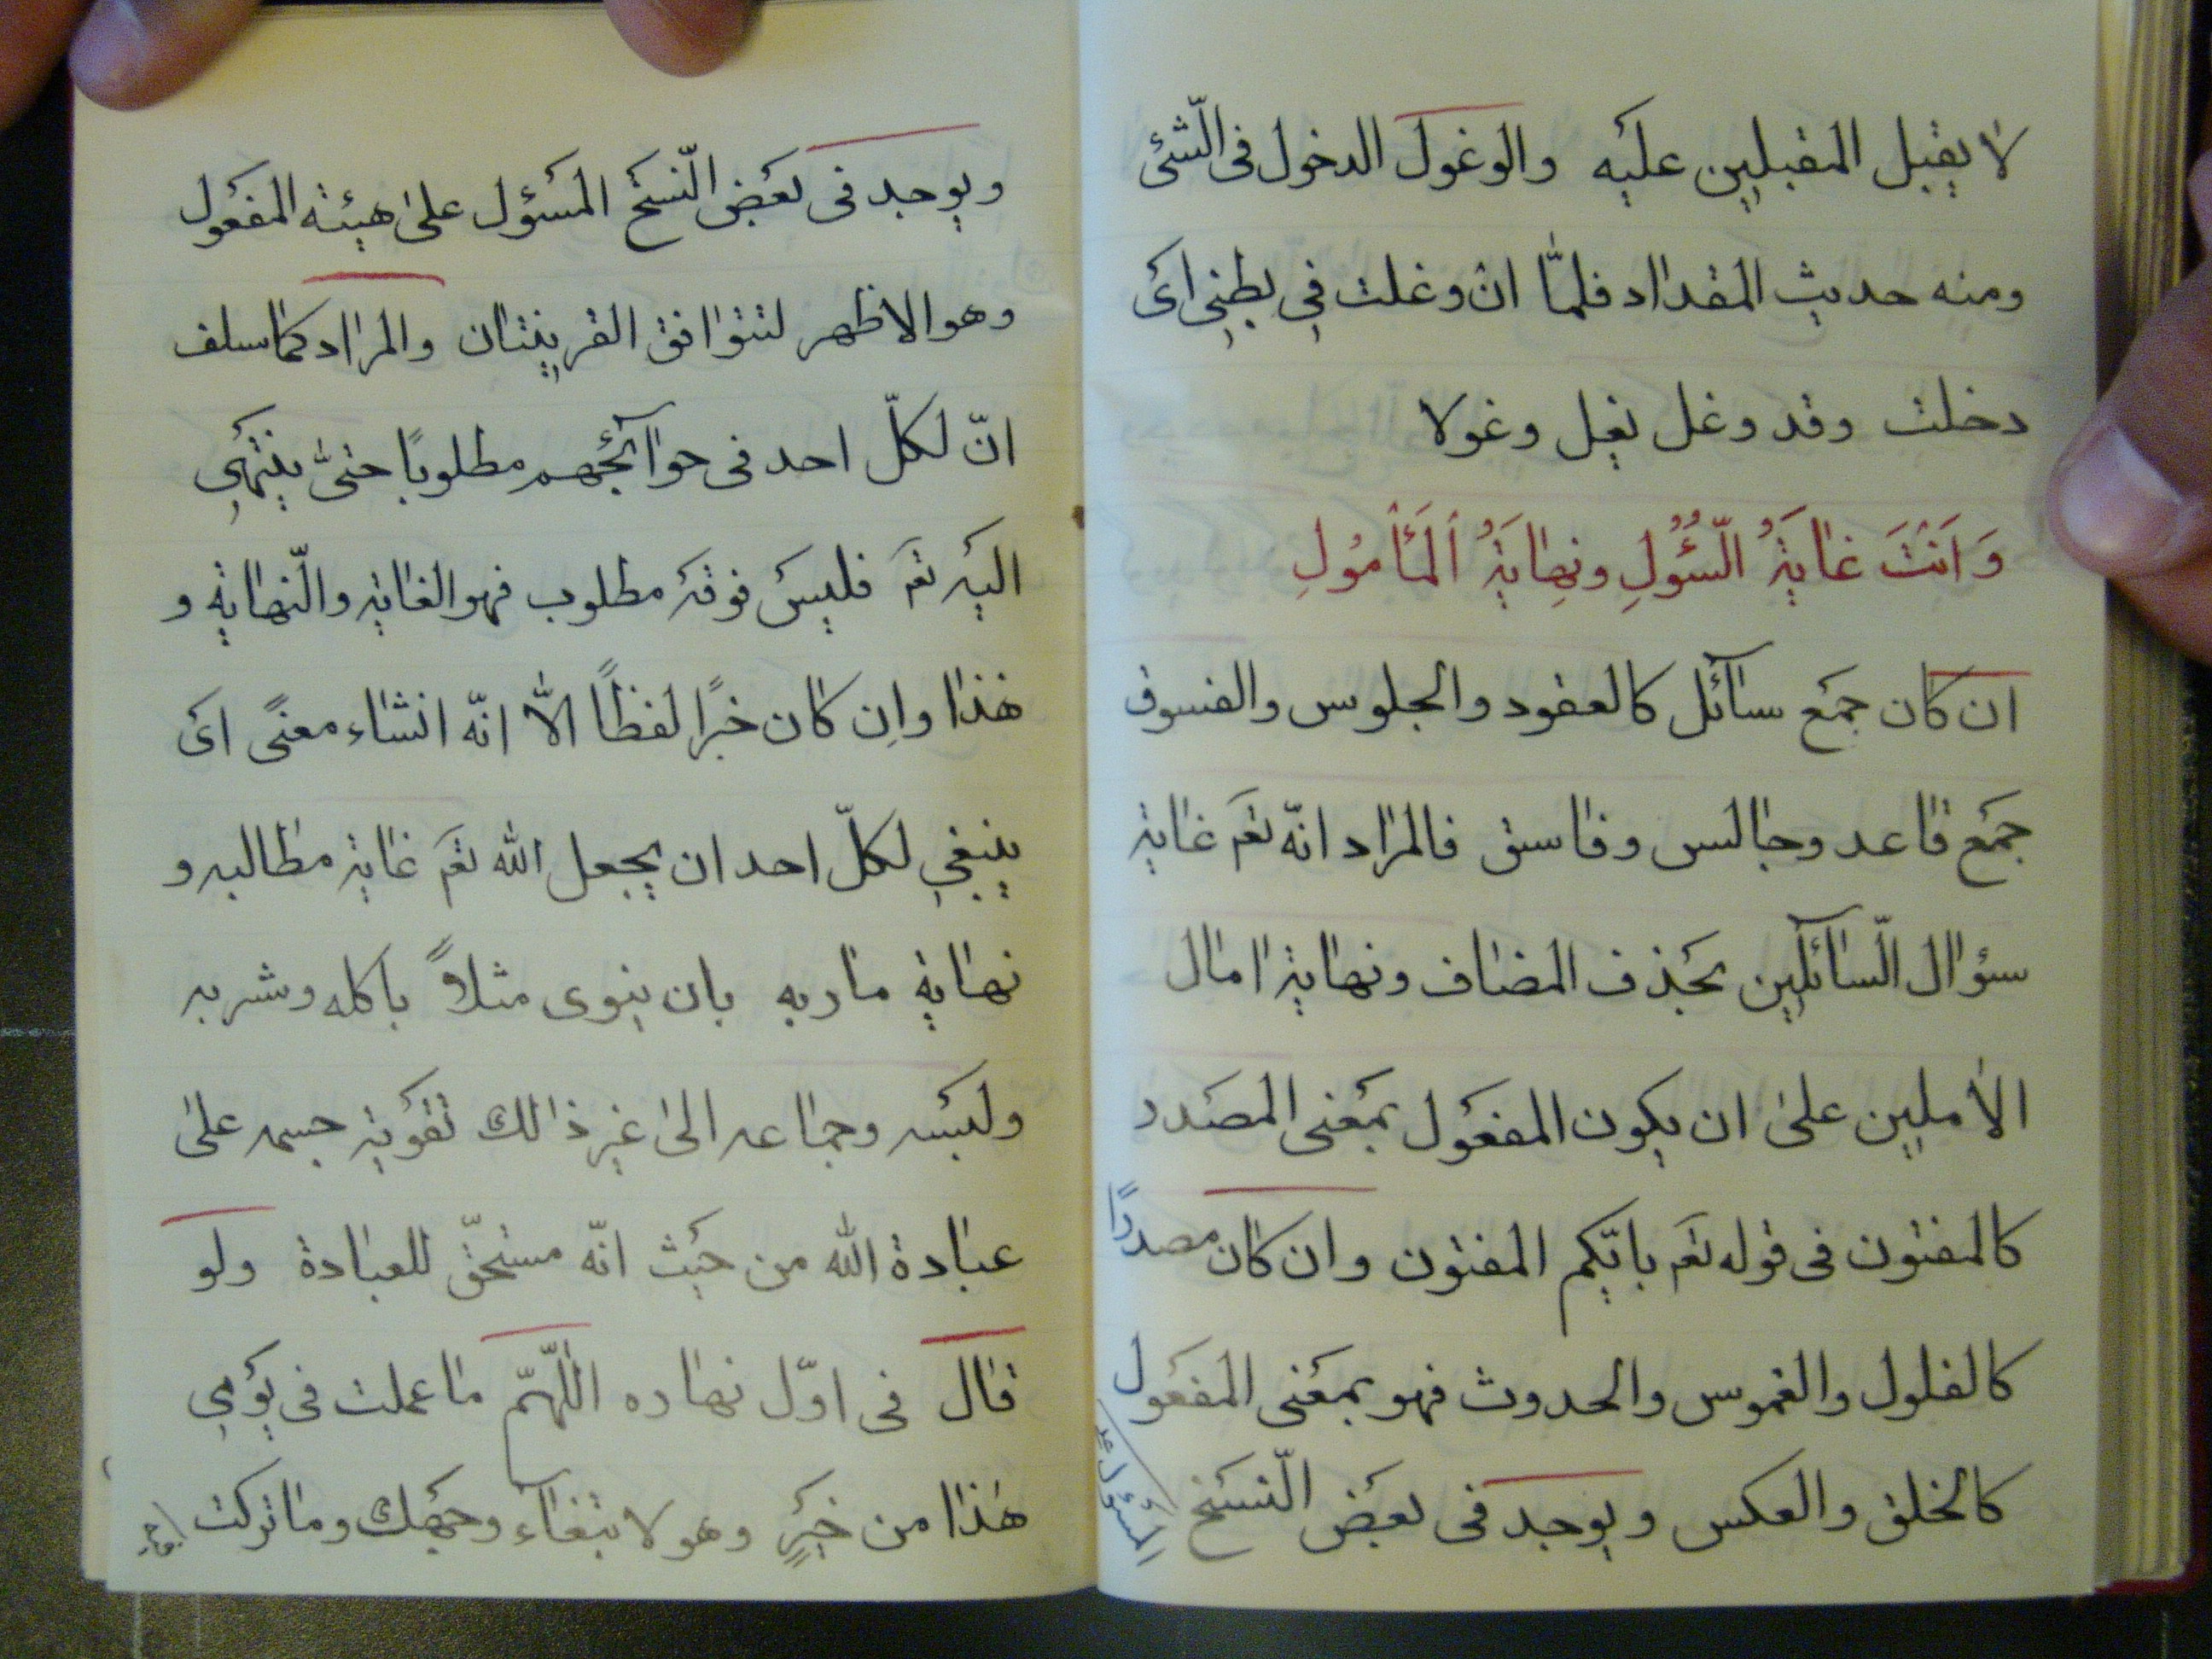 لا يقبل المقبلين عليه والوغول الدخول فى الشئ
ومنه حديث المقداد فلمّا ان وغلت في بطنى اى
دخلت وقد وغل يغل وغولا
وَ اَنْتَ غايَةُ السُّؤُلِ ونِهايَةُ اَلْمَأْمُولِ
ان كان جمع سآئل كالعقود والجلوس والفسوق
جمع قاعد وجالس وفاسق فالمراد انّه تعَ غاية
سؤال السّآئلين بحذف المضاف ونهاية امال
الاملين على ان يكون المفعول بمعنى المصدر
كالمفتون فى قوله تعَ بايّكم المفتون وان كان مصدرًا
كالفلول والغموس والحدوث فهو بمعنى المفعول
كالخلق والعكس ويوجد فى بعض النّسخ
ويوجد فى بعض النّسخ المسؤل على هيئة المفعول
وهو الاظهر لتتوافق القرينتان والمراد كما سلف
انّ لكلّ احد فى حوآئجهم مطلوبًا حتىّ ينتهى
اليه تعَ فليس فوقه مطلوب فهو الغاية والنّهاية و
هٰذا واِن كان خبرًا لفظاً الاّ انّه انشاء معنًى اى
ينبغي لكلّ احد ان يجعل الله تعَ غاية مطالبه و
نهاية ماربه بان ينوى مثلاً باكله وشربه
ولبسه وجماعه الى غير ذالك تقوية جسمه على
عبادة الله من حيث انّه مستحقّ للعبادة ولو
قال فى اوّل نهاره اللّهمّ ما عملت فى يومى
هٰذا من خيرٍ وهو لابتغآء وجهك وما تركت